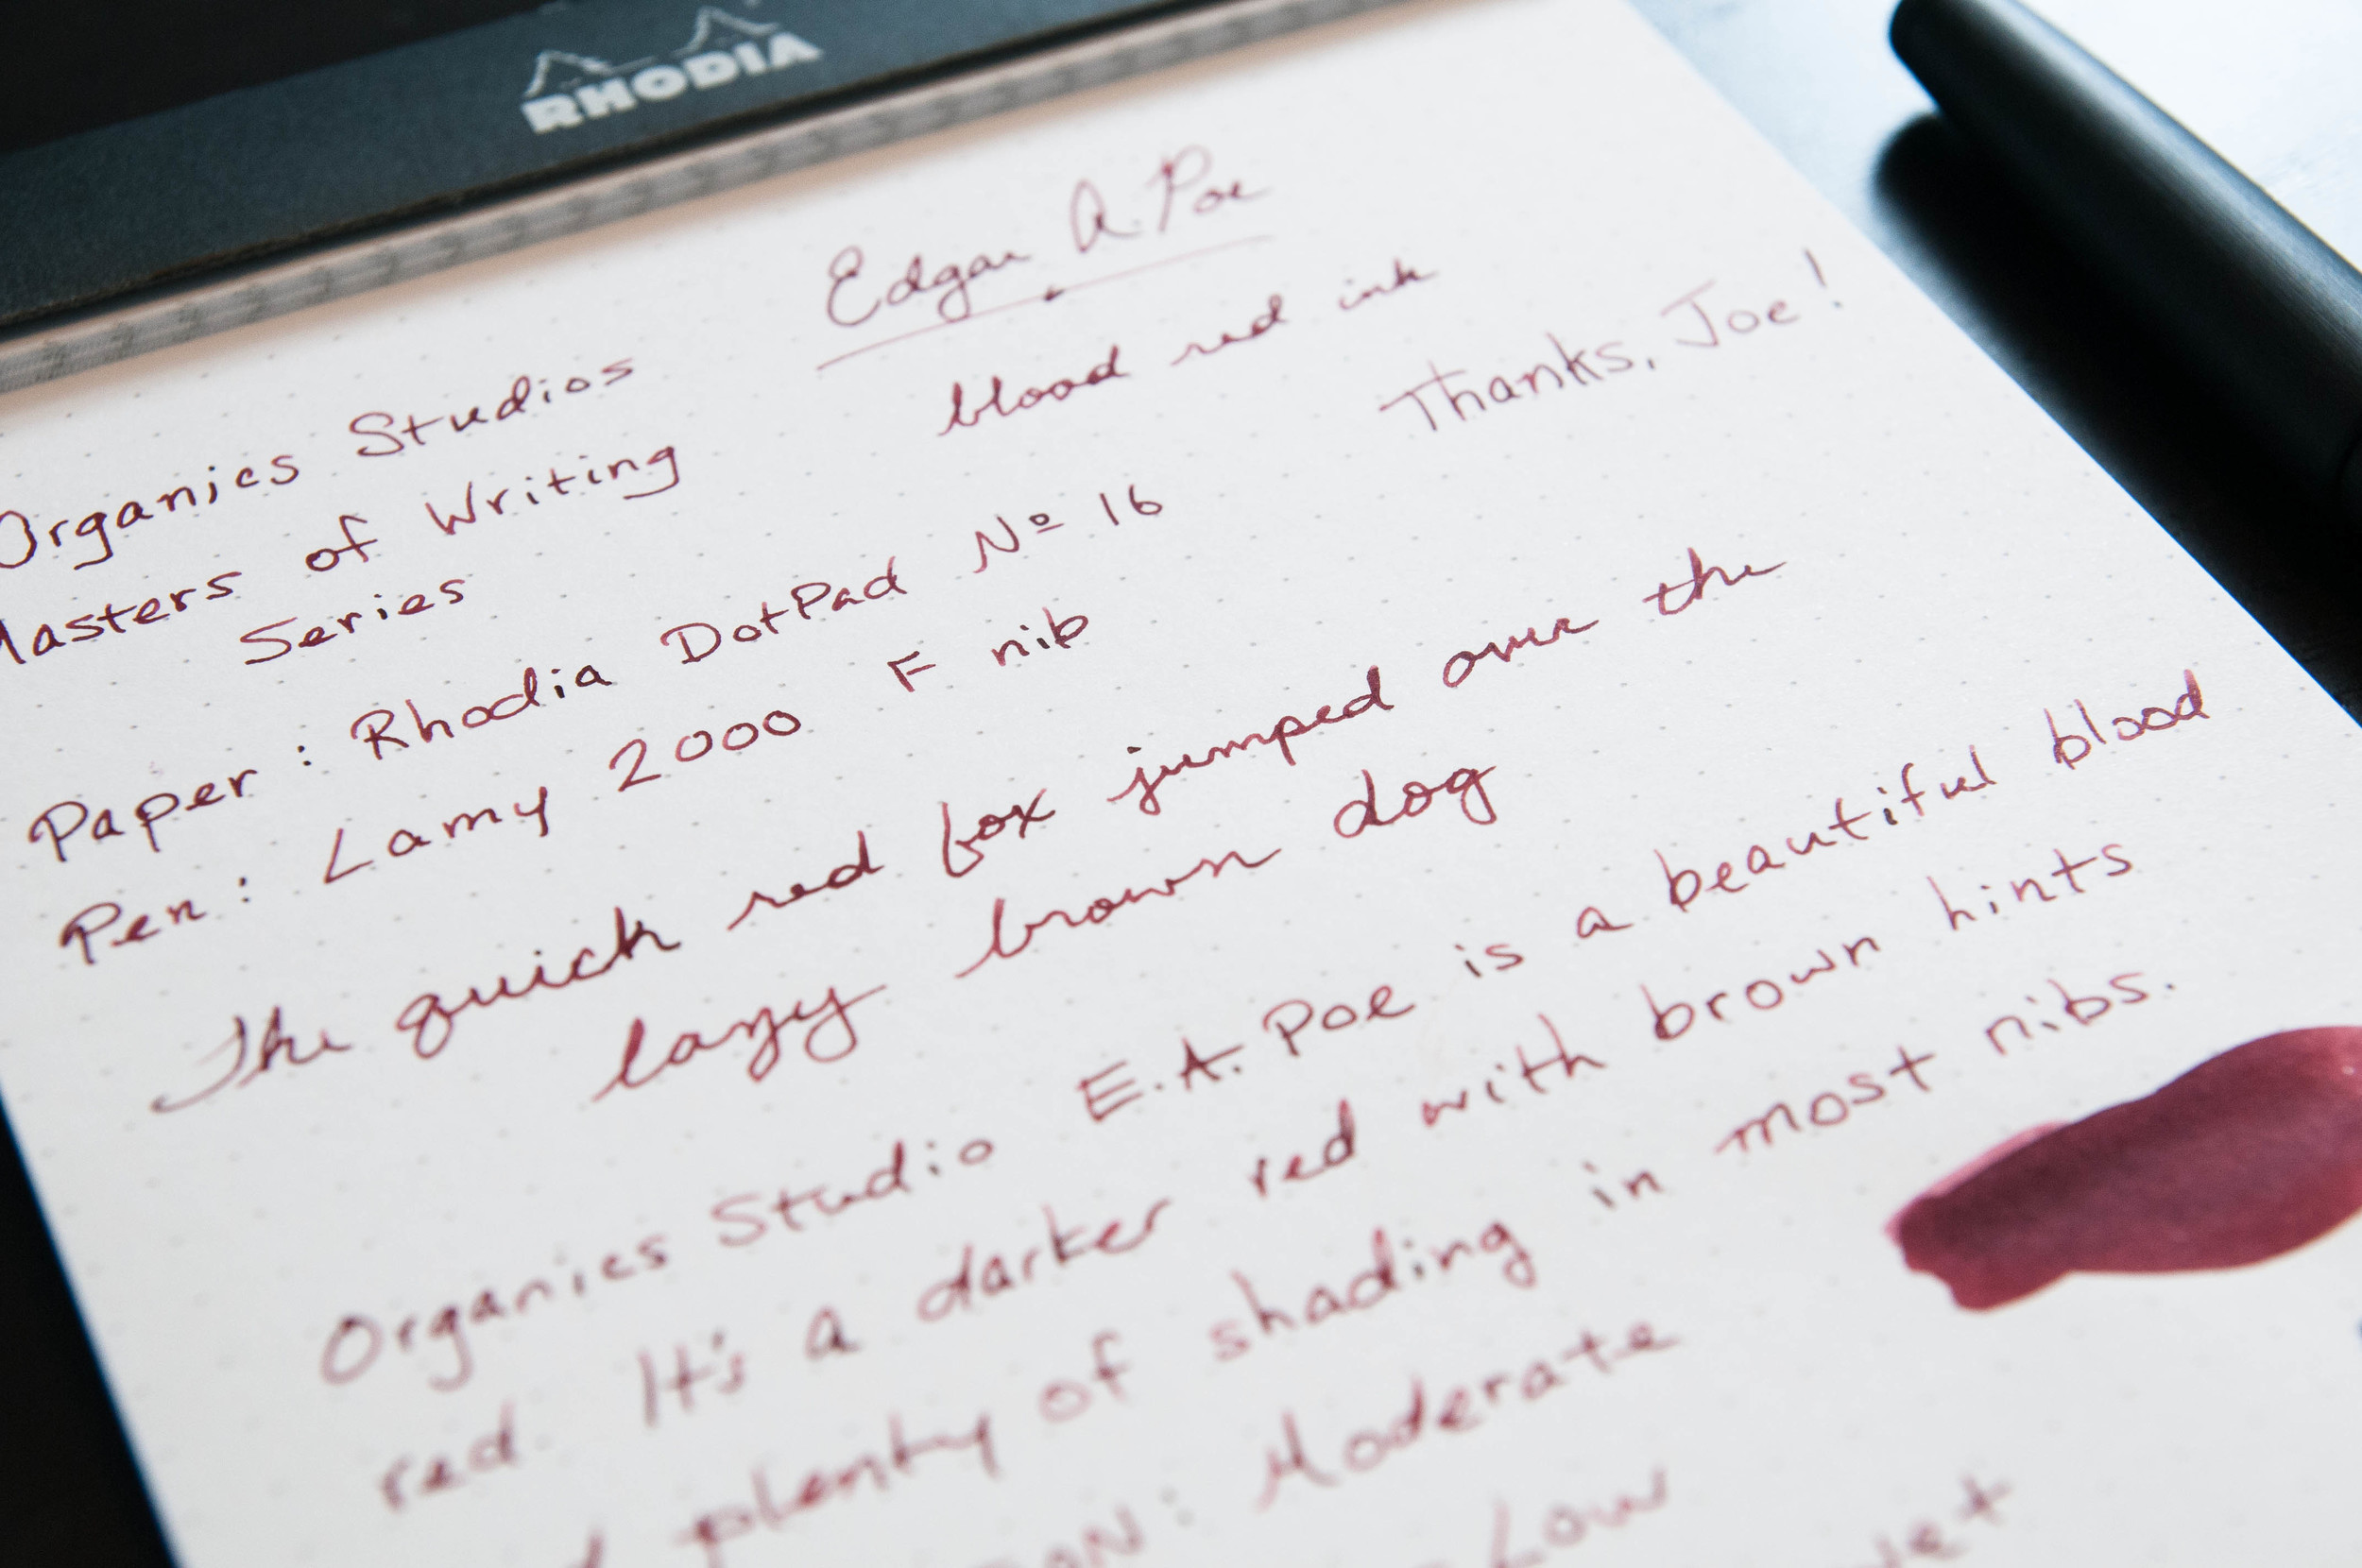 RHODIA
Edgar A. Poe
blood red ink
Thanks, Joe!
Organics Studios
Masters of Writing
Series
Paper: Rhodia DotPad Nº 16
Pen: Lamy 2000 F nib
The quick red fox jumped over the
lazy brown dog
Organics Studio E.A. Poe is a beautiful blood
red. It's a darker red with brown hints
plenty of shading in most nibs.
Moderate
Low